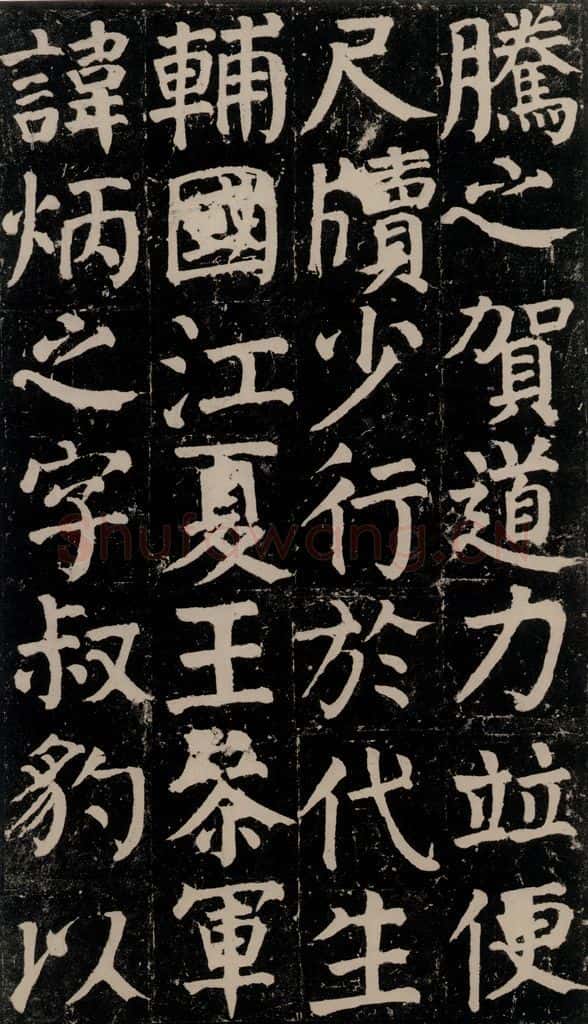 騰之賀道力並便
尺牘少行於代生
輔國江夏王叅軍
諱炳之字叔豹以
Shufawang.CN